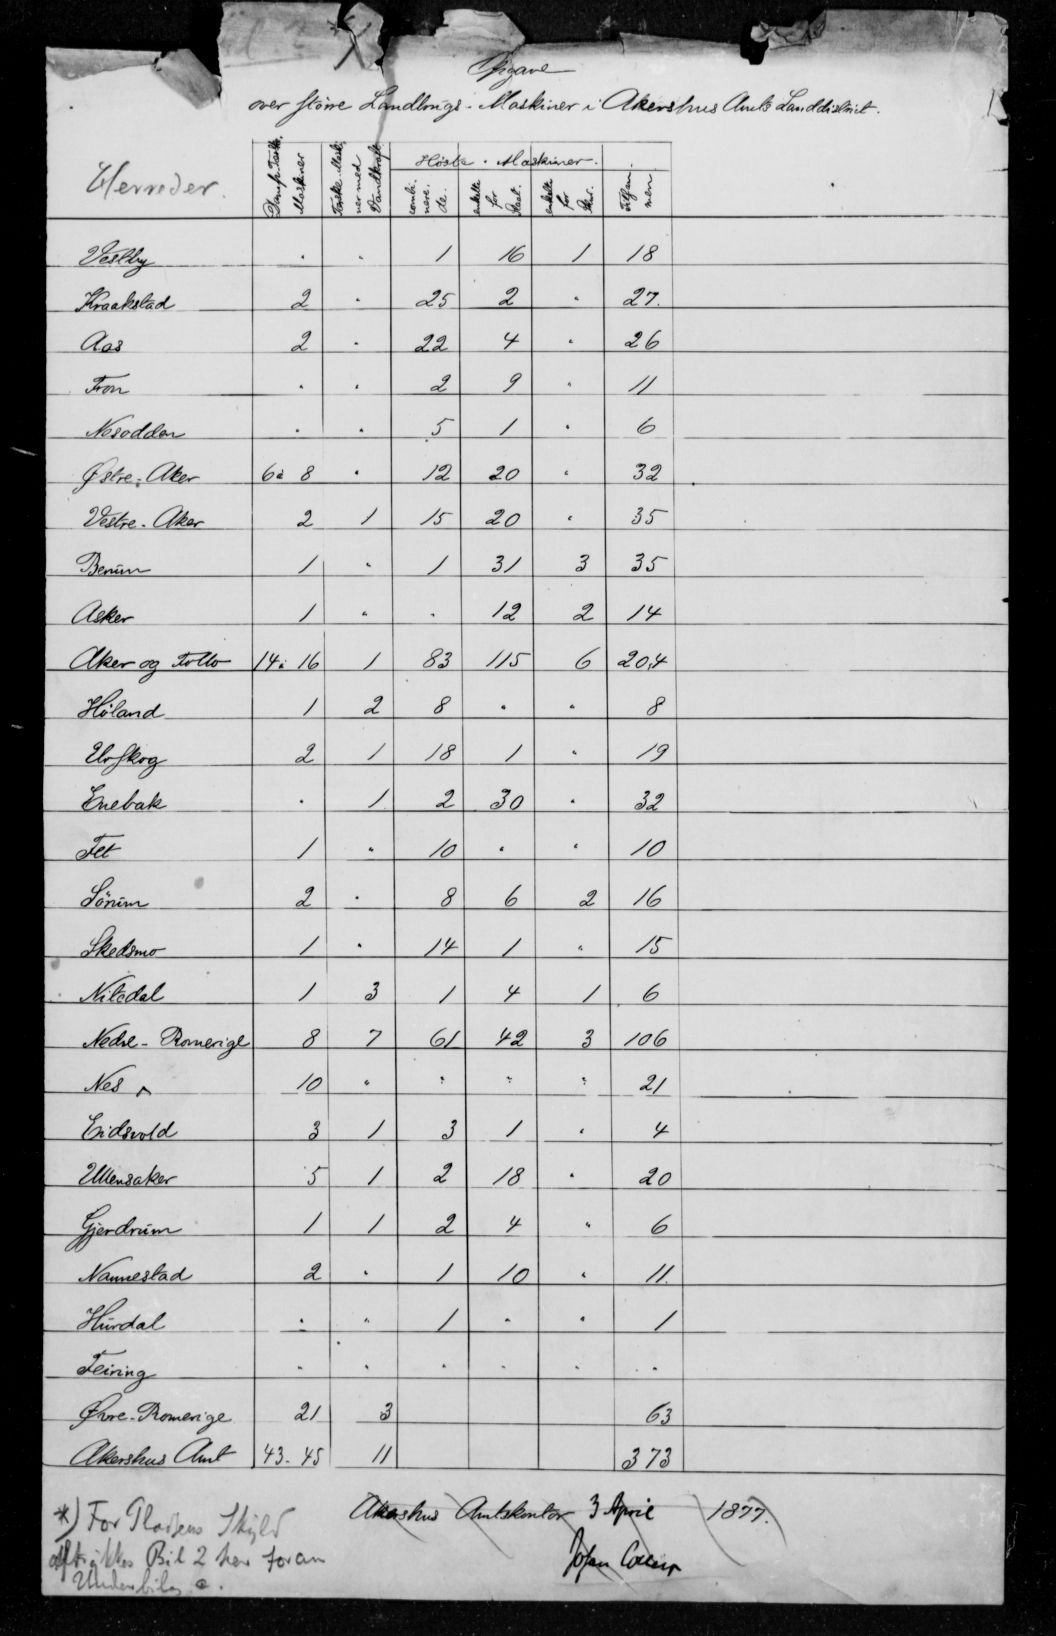 Opgave
over större Landbrugs-Maskiner i Akershus Amts Landdistrict.
Herreder. Damp-Tærske Maskiner Tærske-Maskiner med Vandkraft Höste-Maskiner. Tilsammen
combinerede. enkelte for Slaat. enkelte for Skur.
Vestby " " 1 16 1 18
Kraakstad 2 " 25 2 " 27.
Aas 2 " 22 4 " 26
Fron " " 2 9 " 11
Nesodden " " 5 1 " 6
Østre-Aker 6 à 8 " 12 20 " 32
Vestre-Aker 2 1 15 20 " 35
Berum 1 " 1 31 3 35
Asker 1 " " 12 2 14
Aker og Follo 14 à 16 1 83 115 6 204
Höland 1 2 8 " " 8
Urskog 2 1 18 1 " 19
Enebak " 1 2 30 " 32
Fet 1 " 10 " " 10
Sörum 2 " 8 6 2 16
Skedsmo 1 " 14 1 " 15
Nitedal 1 3 1 4 1 6
Nedre-Romerige 8 7 61 42 3 106
Nes 10 " " " " 21
Eidsvold 3 1 3 1 " 4
Ullensaker 5 1 2 18 " 20
Gjerdrum 1 1 2 4 " 6
Nannestad 2 " 1 10 " 11.
Hurdal " " 1 " " 1
Feiring " " " " " "
Øvre-Romerige 21 3 63
Akershus Amt 43-45 11 373
Akershus Amtskontor 3 April 1877.
*) For Pladsens Skyld
aftrykkes Bil 2 her foran
Underbilag c.